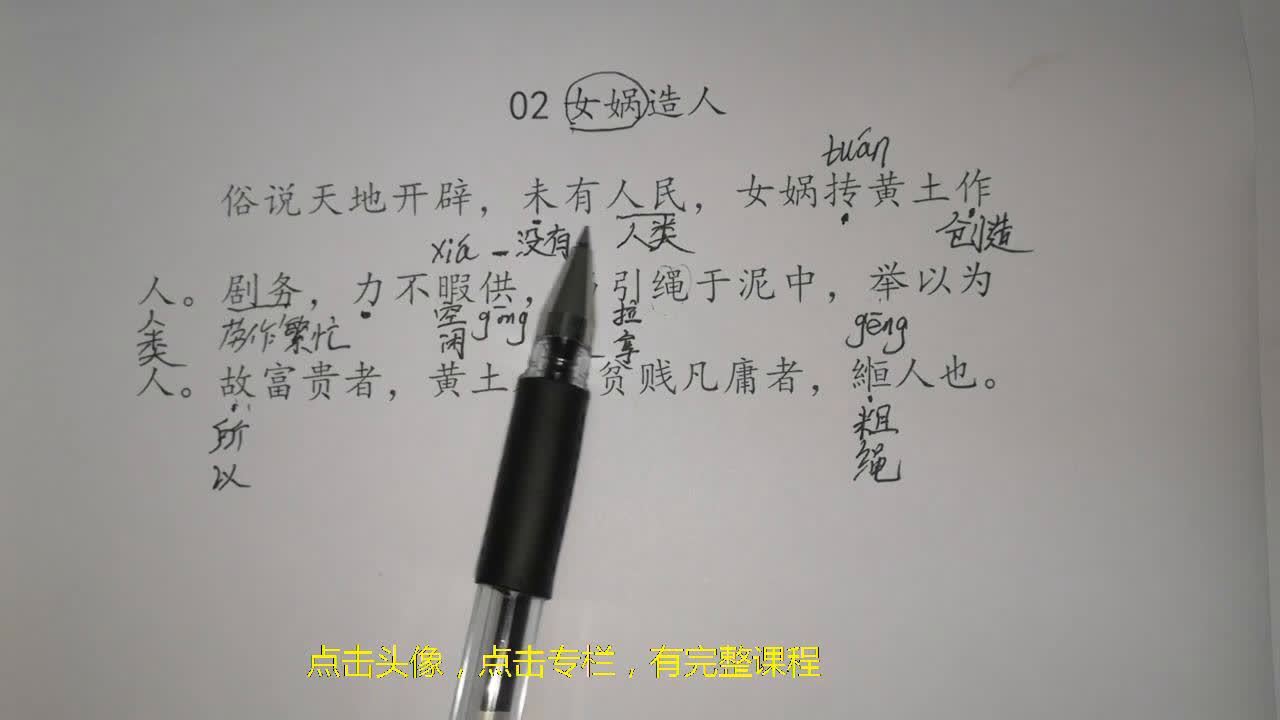 02 女娲造人
tuán
俗说天地开辟，未有人民，女娲抟黄土作
xiá 没有 人类 创造
人。剧务，力不暇供，引绳于泥中，举以为
人类 劳作繁忙 空闲 gōng 拉 gēng
人。故富贵者，黄土 贫贱凡庸者，縆人也。
所以 粗绳
点击头像，点击专栏，有完整课程